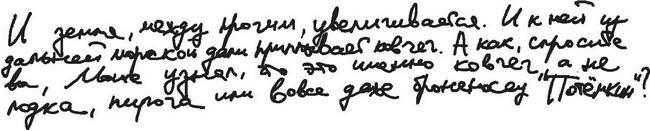 И земля, между прочим, увеличивается. И к ней из
дальней морской дали приплывает ковчег. А как, спросите
вы, Мыше узнал, то это именно ковчег, а не
лодка, пирога или вовсе даже броненосец "Потёмкин"?